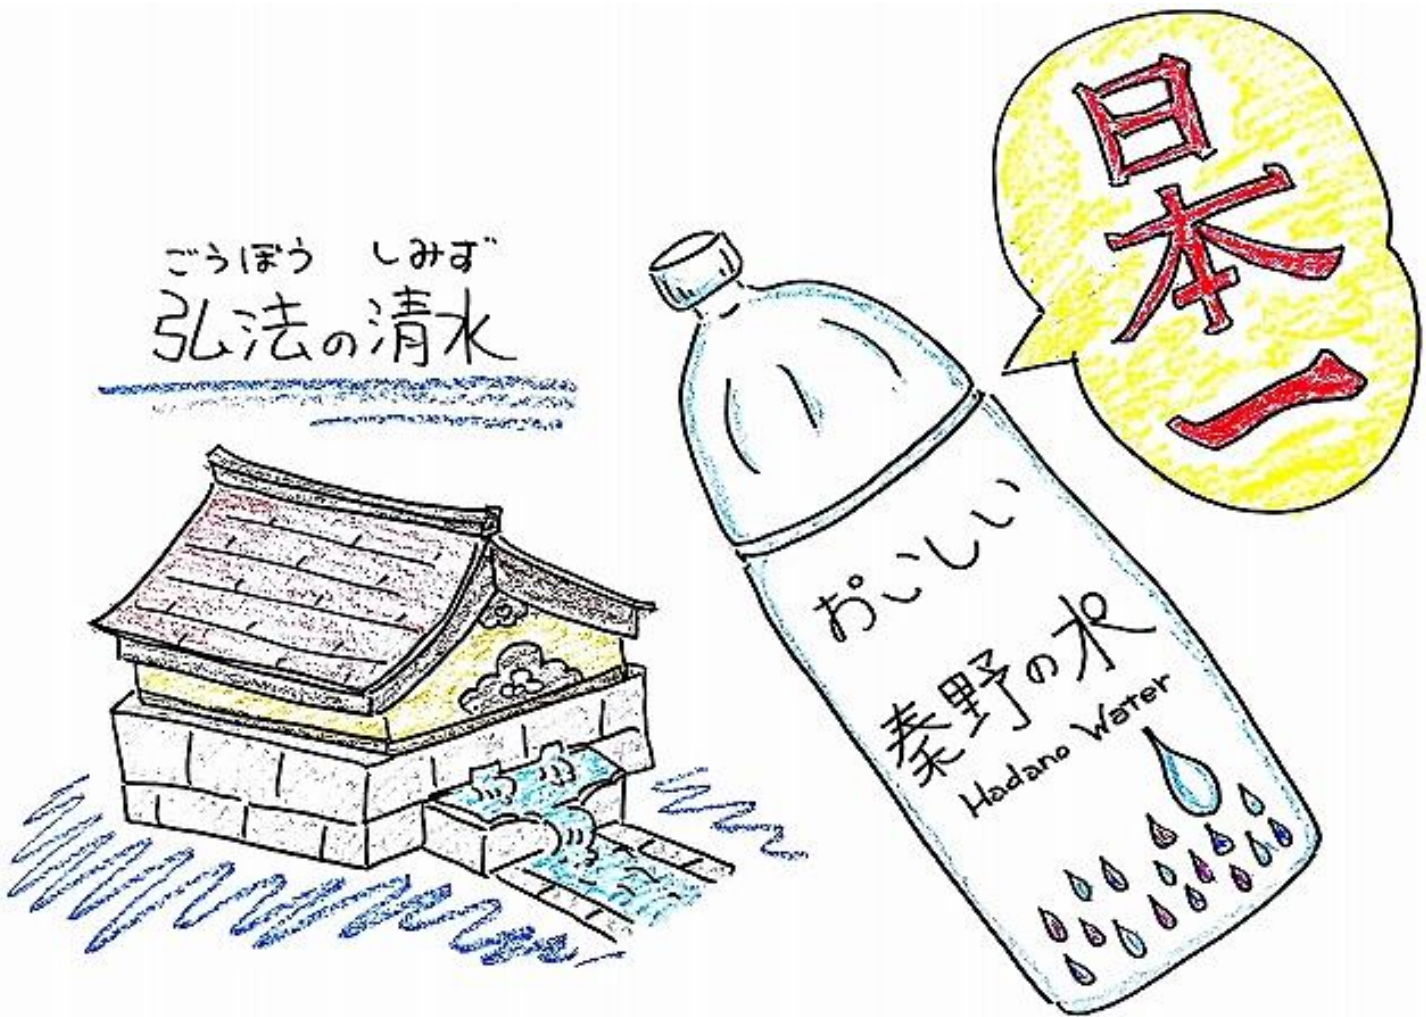 ごうぼう しみず
弘法の清水
おいしい
秦野の水
Hadano Water
日本一